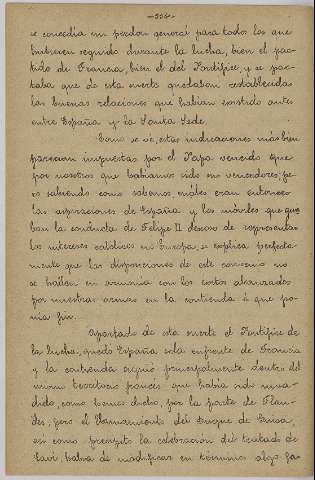 -556-
se concedia un perdon general para todos los que
hubieren seguido durante la lucha, bien el par-
tido de Francia, bien el del Pontífice, y se pac-
taba que de esta suerte quedaban restablecidas
las buenas relaciones que habian existido antes
entre España y la Santa Sede.
Como se vé, estas indicaciones más bien
parecian impuestas por el Papa vencido que
por nosotros que habiamos sido sus vencedores, pe-
ro sabiendo como sabemos, cuáles eran entonces
las aspiraciones de España y los móviles que guia
ban la conducta de Felipe II deseoso de representar
los intereses católicos en Europa, se explica perfecta-
mente que las disposiciones de este convenio no
se hallen en armonia con los éxitos alcanzados
por nuestras armas en la contienda á que po-
nia fin.
Apartado de esta suerte el Pontífice de
la lucha, quedó España sola enfrente de Francia
y la contienda siguió principalmente dentro del
mismo territorio francés que habia sido inva-
dido, como hemos dicho, por la parte de Flan-
des; pero el llamamiento del Duque de Guisa,
así como produjo la celebracion del tratado de
Cavi habia de modificar en términos algo fa-